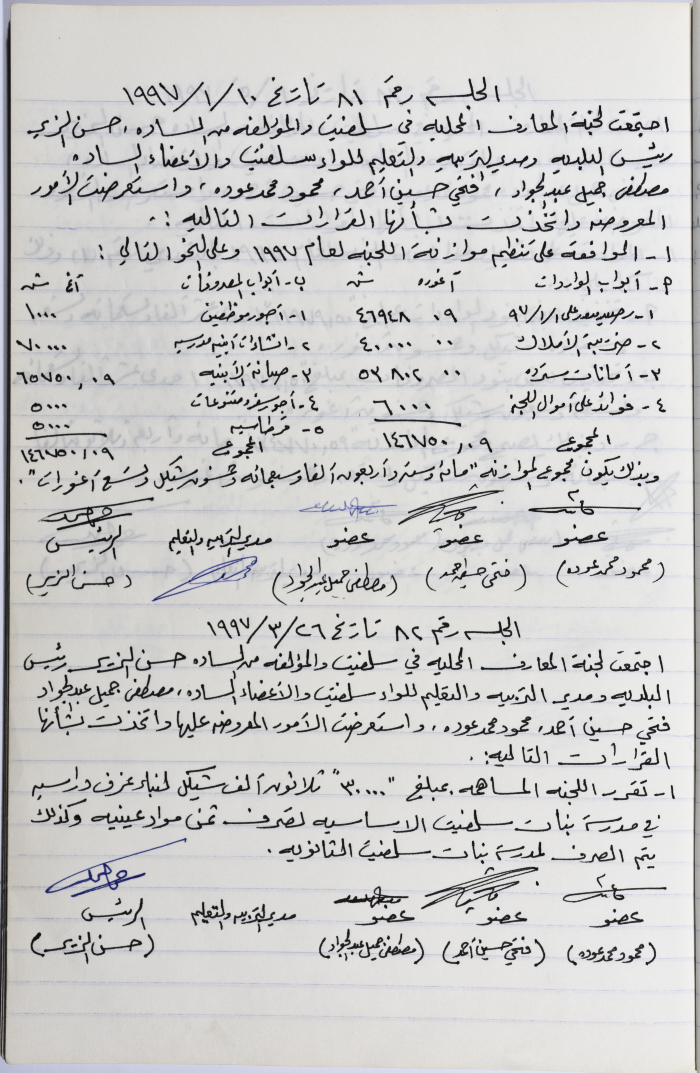 الجلسه رقم ٨١ تاريخ ١٠/١/١٩٩٧
اجتمعت لجنة المعارف المحليه في سلفيت والمؤلفه من الساده، حسن الزير
رئيس البلديه ومدير التربيه والتعليم للواء سلفيت والأعضاء الساده
مصطفى جميل عبد الجواد، فتحي حسين أحمد، محمود محمد عوده، واستعرضت الأمور
المعروضه واتخذت بشأنها القرارات التاليه :.
١- الموافقة على تنظيم موازنة اللجنه لعام ١٩٩٧ وعلى النحو التالي :
م- أبواب الواردات آغوره ش ب- أبواب المصروفات آغ ش
١- رصيد مدور على ١/١/٩٧ ٠٩ ٤٦٩٤٨ ١- أجور موظفين ١٠٠٠
٢- ضريبة الأملاك ٠٠ ٤٠٠٠٠ ٢- انشاءات أبنيه مدرسيه ٧٠٠٠٠
٣- أمانات مسترده ٠٠ ٥٣٨٠٢ ٣- صيانة الأبنيه ٦٥٧٥٠,٠٩
٤- فوائد على أموال اللجنة ٦٠٠٠ ٤- أجور سفر ومتنوعات ٥٠٠٠
٥- قرطاسيه ٥٠٠٠
المجموع ١٤٦٧٥٠,٠٩ المجموع ١٤٦٧٥٠,٠٩
وبذلك يكون مجموع الموازنه "مائة وستة وأربعون ألفا وسبعمائه وخمسون شيكل وتسع أغورات".
عضو عضو عضو مدير التربيه والتعليم الرئيس
(محمود محمد عوده) (فتحي حسين احمد) (مصطفى جميل عبد الجواد) (حسن الزير)
الجلسه رقم ٨٢ تاريخ ٢٦/٣/١٩٩٧
اجتمعت لجنة المعارف المحليه في سلفيت والمؤلفه من الساده حسن الزير رئيس
البلديه ومدير التربيه والتعليم للواء سلفيت والأعضاء الساده، مصطفى جميل عبد الجواد
فتحي حسين أحمد، محمود محمد عوده، واستعرضت الأمور المعروضه عليها واتخذت بشأنها
القرارات التاليه :.
١- تقرر اللجنه المساهمه بمبلغ "٣٠٠٠٠" ثلاثون ألف شيكل لبناء غرف دراسيه
في مدرسة بنات سلفيت الاساسيه لصرف ثمن مواد عينيه وكذلك
يتم الصرف لمدرسة بنات سلفيت الثانويه .
عضو عضو عضو مدير التربيه والتعليم الرئيس
(محمود محمد عوده) (فتحي حسين أحمد) (مصطفى جميل عبد الجواد) (حسن الزير)